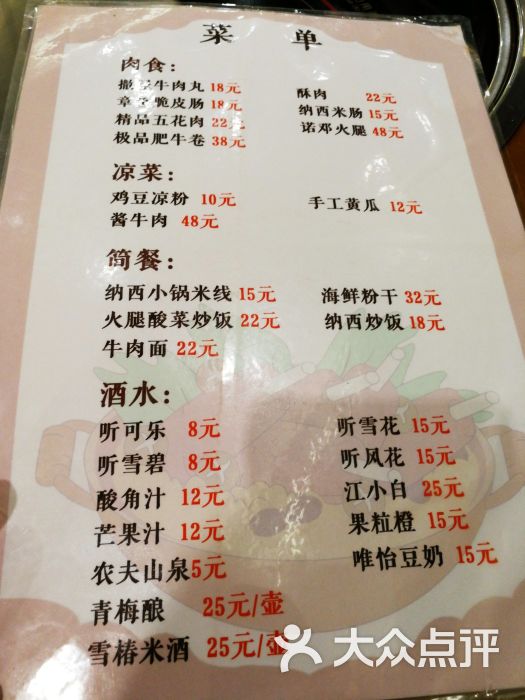 菜 单
肉食：
撒尿牛肉丸 18元 酥肉 22元
章鱼脆皮肠 18元 纳西米肠 15元
精品五花肉 22元 诺邓火腿 48元
极品肥牛卷 38元
凉菜：
鸡豆凉粉 10元 手工黄瓜 12元
酱牛肉 48元
简餐：
纳西小锅米线 15元 海鲜粉干 32元
火腿酸菜炒饭 22元 纳西炒饭 18元
牛肉面 22元
酒水：
听可乐 8元 听雪花 15元
听雪碧 8元 听风花 15元
酸角汁 12元 江小白 25元
芒果汁 12元 果粒橙 15元
农夫山泉5元 唯怡豆奶 15元
青梅酿 25元/壶
雪椿米酒 25元/壶
大众点评